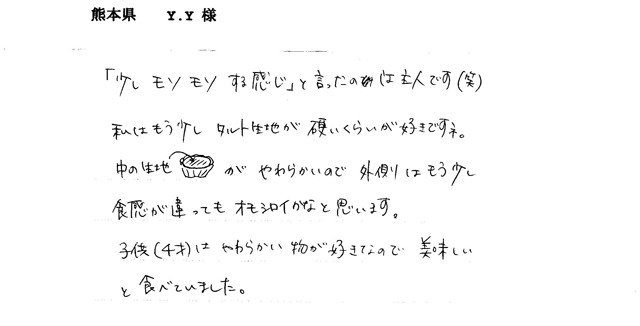 熊本県　Y.Y 様
「少し モソモソ する感じ」と言ったのは主人です(笑)
私はもう少し タルト生地が 硬いくらいが好きですネ。
中の生地 が やわらかいので 外側は もう少し
食感が違っても オモシロイかなと思います。
子供(4才)は やわらかい 物が好きなので 美味しい
と 食べていました。